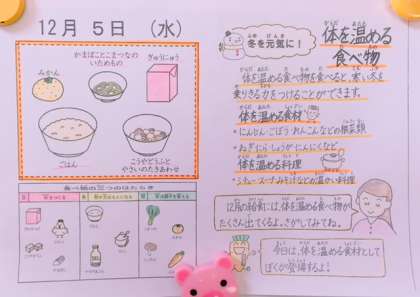 12月 5日 (水)
かまぼことこまつなの
いためもの
ぎゅうにゅう
みかん
ごはん
こうやどうふと
やさいのたきあわせ
食べ物の三つのはたらき
冬を元気に!
体を温める
食べ物
体を温める食べ物を食べると、寒い冬を
乗りきる力をつけることができます。
体を温める食材
・にんじん・ごぼう・れんこんなどの根菜類
・ねぎ・にら・しょうが・にんにくなど
体を温める料理
・シチュー・スープ・みそ汁などの温かい料理
12月の給食には、体を温める食べ物が
たくさん出てくるよ。さがしてみてね。
今日は、体を温める食材として
ぼくが登場するよ!